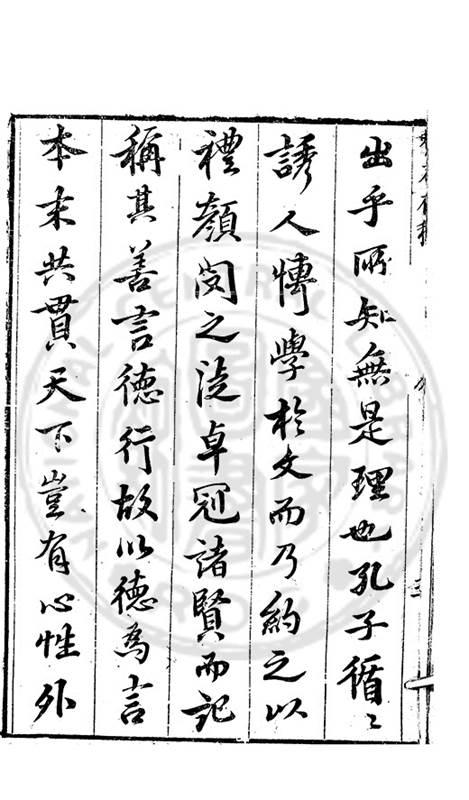 出乎所知無是理也孔子循〻
誘人博學於文而乃約之以
禮顏閔之徒卓冠諸賢而記
稱其善言德行故以德為言
本末共貫天下豈有心性外